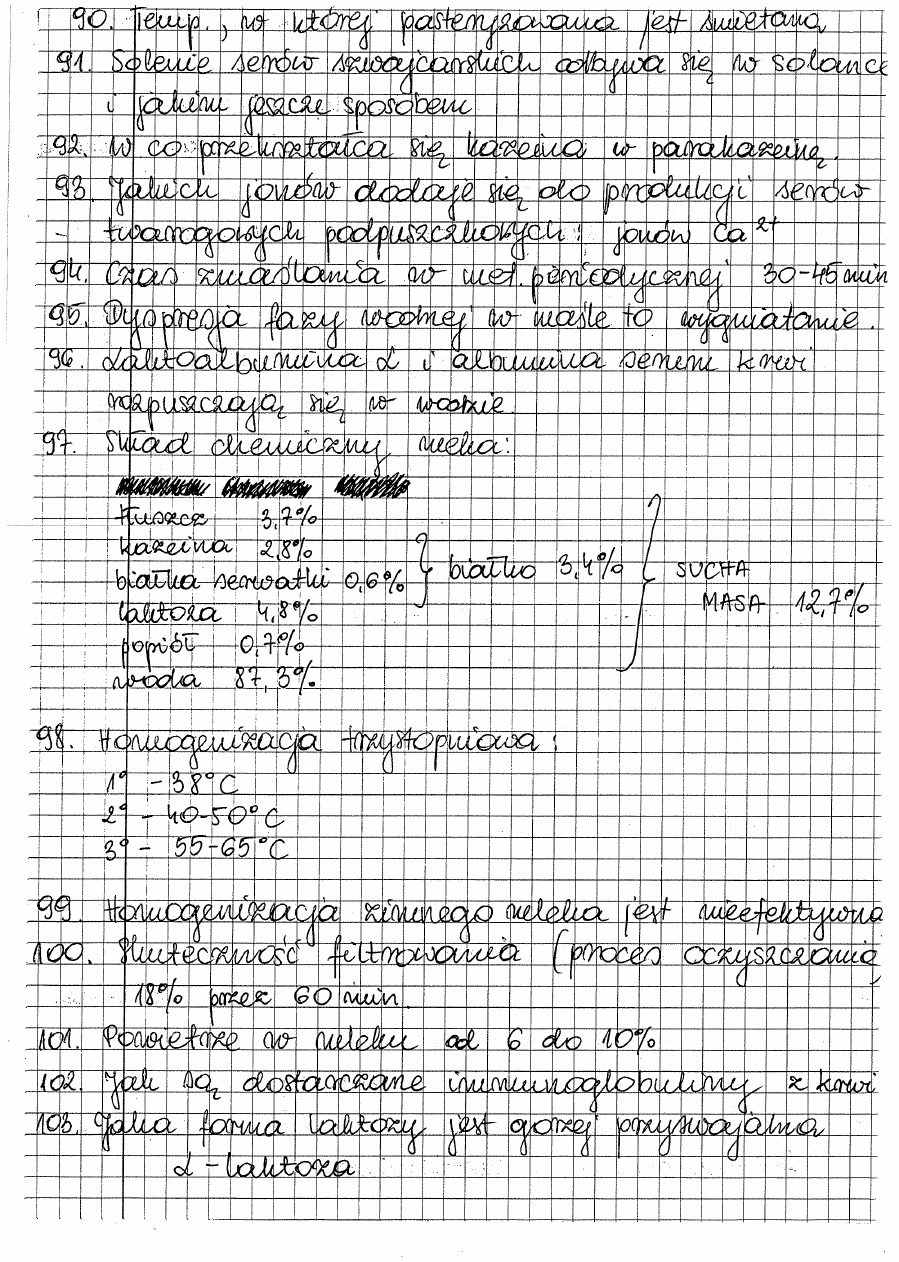 90. Temp., w której pasteryzowana jest śmietana
91. Solenie serów szwajcarskich odbywa się w solance
i jakim jeszcze sposobem
92. W co przekształca się kazeina w parakazeinę.
93. Jakich jonów dodaje się do produkcji serów
- twarogowych podpuszczkowych: jonów Ca²⁺
94. Czas zmaślania w met. periodycznej 30-45 min
95. Dyspresja fazy wodnej w maśle to wygniatanie.
96. Laktoalbumina α i albumina serum krwi
rozpuszczają się w wodzie
97. Skład chemiczny mleka:
tłuszcz 3,7%
kazeina 2,8%
białka serwatki 0,6% } białko 3,4% } SUCHA
laktoza 4,8% MASA 12,7%
popiół 0,7%
woda 87,3%
98. Homogenizacja trzystopniowa:
1° - 38°C
2° - 40-50°C
3° - 55-65°C
99. Homogenizacja zimnego mleka jest nieefektywna
100. Skuteczność filtrowania (proces oczyszczania,
18% przez 60 min.
101. Powietrze w mleku od 6 do 10%
102. Jak są dostarczane immunoglobuliny z krwi
103. Jaka forma laktozy jest gorzej przyswajalna
α - laktoza